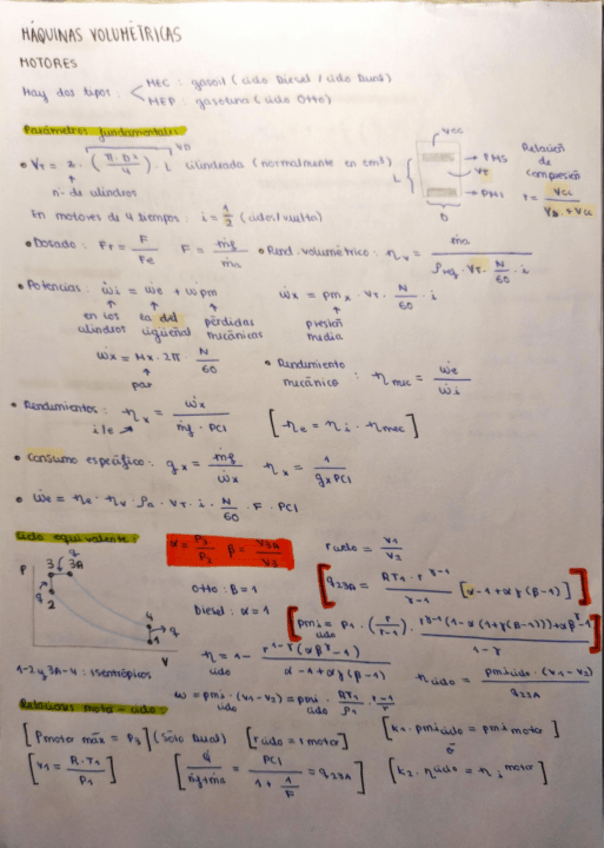 MÁQUINAS VOLUMÉTRICAS
MOTORES
Hay dos tipos: < MEC : gasoil (ciclo Diesel / ciclo Dual)
MEP : gasolina (ciclo Otto)
Parámetros fundamentales
• V_T = z · (π · D² / 4) · L cilindrada (normalmente en cm³)
V_D
nº de cilindros
En motores de 4 tiempos : i = 1/2 (ciclos/vuelta)
Vcc
PMS
V_T
PMI
L
D
Relación de compresión
r = Vcc / (V_D + Vcc)
• Dosado : F_r = F / F_e F = ṁf / ṁa • Rend. volumétrico : η_v = ṁa / (ρ_ref · V_T · N/60 · i)
• Potencias : ẇi = ẇe + ẇpm ẇx = pm_x · V_T · N/60 · i
en los cilindros
la del cigüeñal
pérdidas mecánicas
presión media
ẇx = Mx · 2π · N/60
par
• Rendimiento mecánico : η_mec = ẇe / ẇi
• Rendimientos : η_x = ẇx / (ṁf · PCI) [η_e = η_i · η_mec]
i/e
• Consumo específico : g_x = ṁf / ẇx η_x = 1 / (g_x PCI)
• ẇe = η_e · η_v · ρ_a · V_T · i · N/60 · F · PCI
Ciclo equivalente :
α = P3 / P2 β = V3A / V3
r ciclo = V1 / V2
P
V
3
3A
2
4
1
q
q
q
Otto : β = 1
Diesel : α = 1
[q_23A = (R T1 · r^(γ-1) / (γ-1)) [α-1+αγ(β-1)]]
[pmi ciclo = P1 · (r / (r-1)) · (r^(γ-1) (1-α(1+γ(β-1))) + αβ^γ - 1) / (1-γ)]
1-2 y 3A-4 : isentrópicos
η ciclo = 1 - r^(1-γ) (αβ^γ - 1) / (α-1+αγ(β-1))
η ciclo = pmi ciclo · (V1-V2) / q_23A
w ciclo = pmi · (V1-V2) = pmi ciclo · (R T1 / P1) · (r-1) / r
Relaciones motor-ciclo :
[P motor máx = P3] (Sólo Dual) [r ciclo = r motor] [k1 · pmi ciclo = pmi motor]
ó
[V1 = R · T1 / P1] [Q̇ / (ṁf+ṁa) = PCI / (1 + 1/F) = q_23A] [k2 · η ciclo = η_i motor]